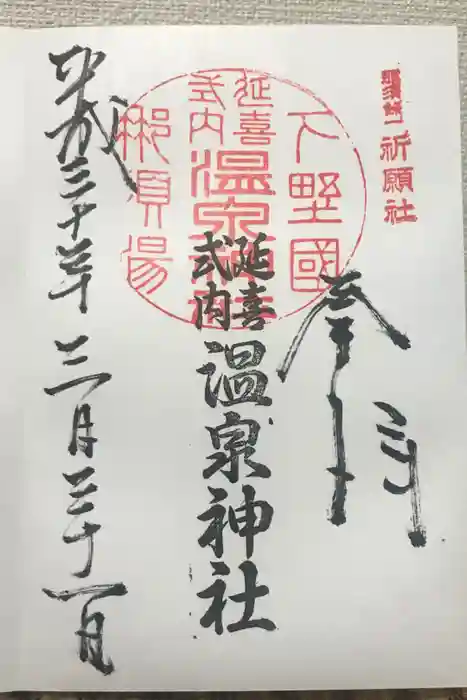 祈願社
奉拝
下野國
延喜
式内
温泉神社
那須湯
延喜
式内
温泉神社
平成三十年 三月三十一日